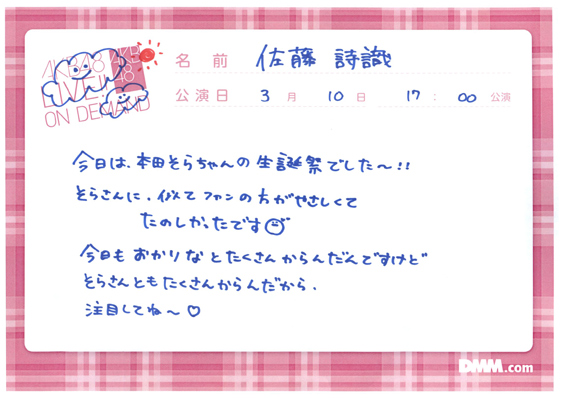 AKB48
LIVE!!
ON DEMAND
AKB
48
名前 佐藤 詩識
公演日 3月 10日 17:00 公演
今日は、本田そらちゃんの生誕祭でした〜!!
そらさんに、似てファンの方がやさしくて
たのしかったです
今日もおかりなとたくさんからんだんですけど
そらさんともたくさんからんだから、
注目してね〜♡
DMM.com